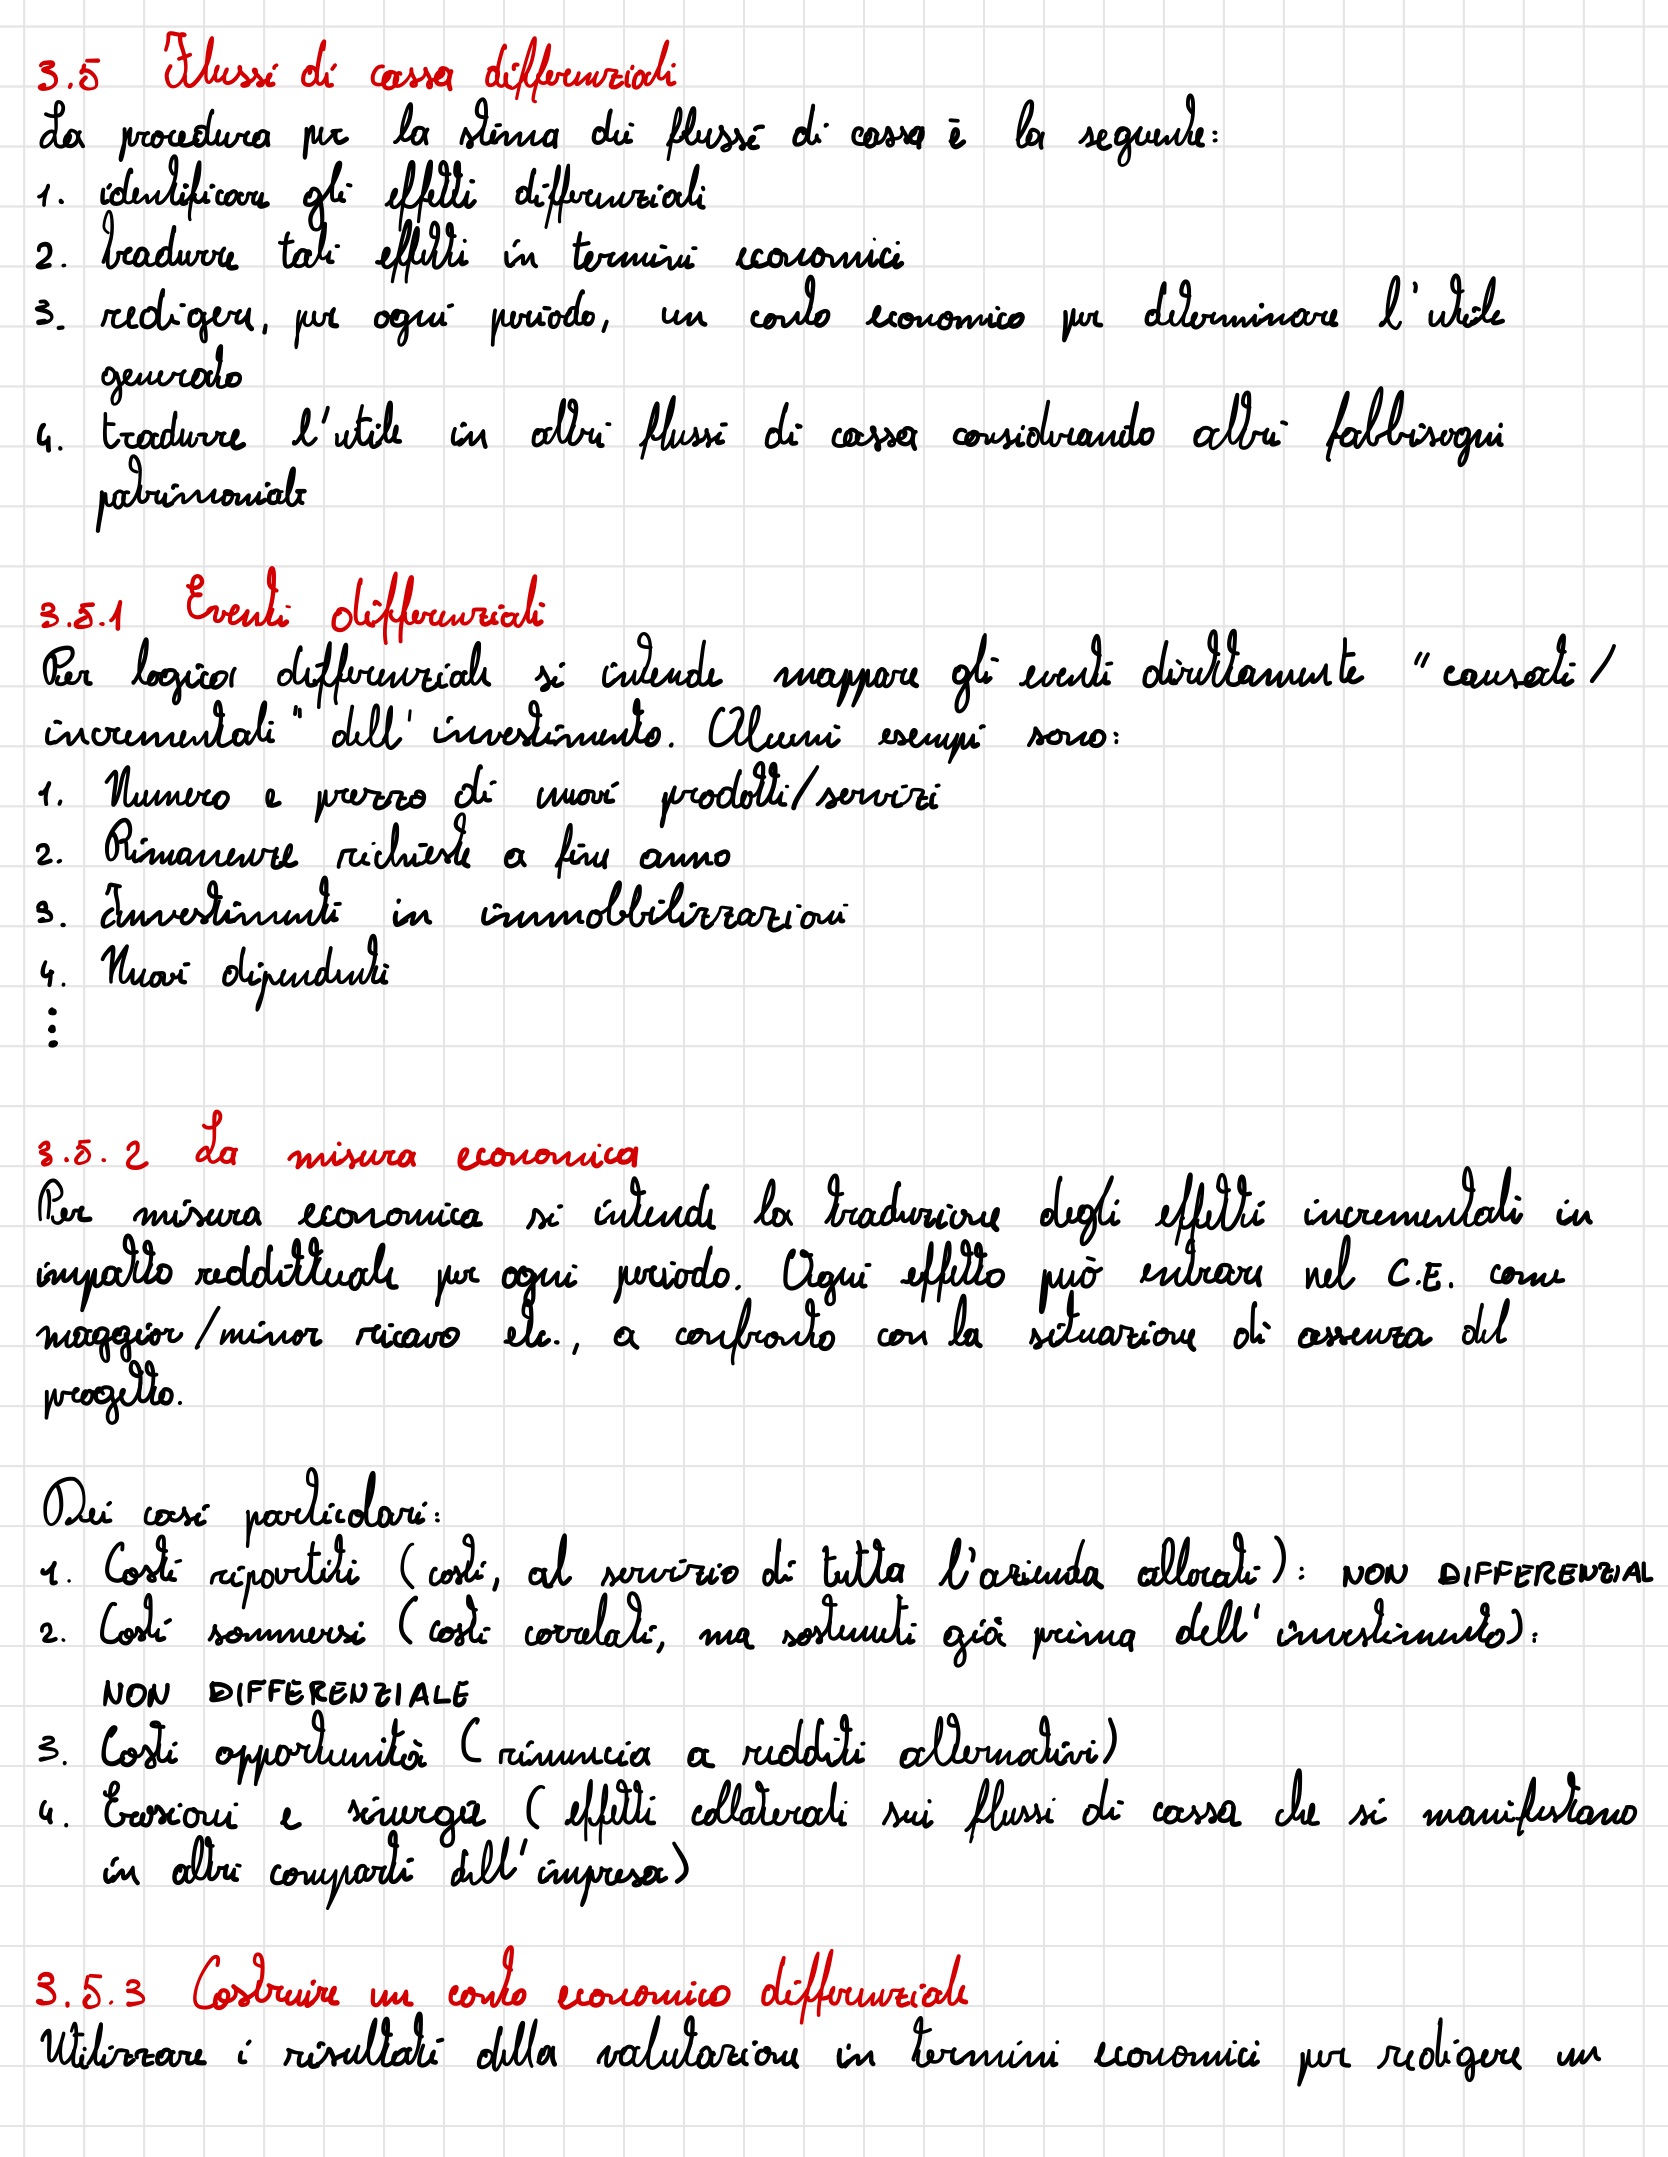 3.5 Flussi di cassa differenziali
La procedura per la stima dei flussi di cassa è la seguente:
1. identificare gli effetti differenziali
2. tradurre tali effetti in termini economici
3. redigere, per ogni periodo, un conto economico per determinare l'utile
generato
4. tradurre l'utile in altri flussi di cassa considerando altri fabbisogni
patrimoniali
3.5.1 Eventi differenziali
Per logica differenziale si intende mappare gli eventi direttamente "causati/
incrementali" dell'investimento. Alcuni esempi sono:
1. Numero e prezzo di nuovi prodotti/servizi
2. Rimanenze richieste a fine anno
3. Investimenti in immobbilizzazioni
4. Nuovi dipendenti
⋮
3.5.2 La misura economica
Per misura economica si intende la traduzione degli effetti incrementali in
impatto reddittuale per ogni periodo. Ogni effetto può entrare nel C.E. come
maggior/minor ricavo etc., a confronto con la situazione di assenza del
progetto.
Dei casi particolari:
1. Costi ripartiti (costi, al servizio di tutta l'azienda allocati): NON DIFFERENZIAL
2. Costi sommersi (costi correlati, ma sostenuti già prima dell'investimento):
NON DIFFERENZIALE
3. Costi opportunità (rinuncia a redditi alternativi)
4. Erosioni e sinergie (effetti collaterali sui flussi di cassa che si manifestano
in altri comparti dell'impresa)
3.5.3 Costruire un conto economico differenziale
Utilizzare i risultati della valutazione in termini economici per redigere un